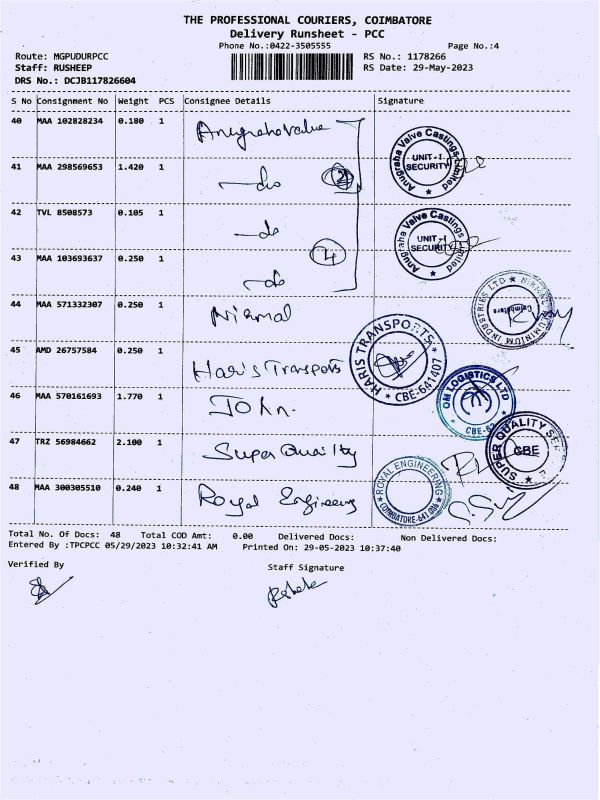 THE PROFESSIONAL COURIERS, COIMBATORE
Delivery Runsheet - PCC
Phone No.:0422-3505555 Page No.:4
Route: MGPUDURPCC RS No.: 1178266
Staff: RUSHEEP RS Date: 29-May-2023
DRS No.: DCJB117826604
S No Consignment No Weight PCS Consignee Details Signature
40 MAA 102828234 0.180 1 Anugraha Valve
Anugraha Valve Castings Limited UNIT-I SECURITY
41 MAA 298569653 1.420 1 —do
42 TVL 8508573 0.105 1 —do
Anugraha Valve Castings Limited UNIT-I SECURITY
43 MAA 103693637 0.250 1 —do
4
44 MAA 571332307 0.250 1 Nirmal
NIRMAL ALUMINIUM INDUSTRIES LTD Coimbatore
45 AMD 26757584 0.250 1 Haris Transports
HARIS TRANSPORTS CBE-641407
46 MAA 570161693 1.770 1 John.
OM LOGISTICS LTD
47 TRZ 56984662 2.100 1 Super Quality
SUPER QUALITY CBE
48 MAA 300305510 0.240 1 Royal Engineering
ROYAL ENGINEERING COIMBATORE-641
Total No. Of Docs: 48 Total COD Amt: 0.00 Delivered Docs: Non Delivered Docs:
Entered By :TPCPCC 05/29/2023 10:32:41 AM Printed On: 29-05-2023 10:37:40
Verified By Staff Signature